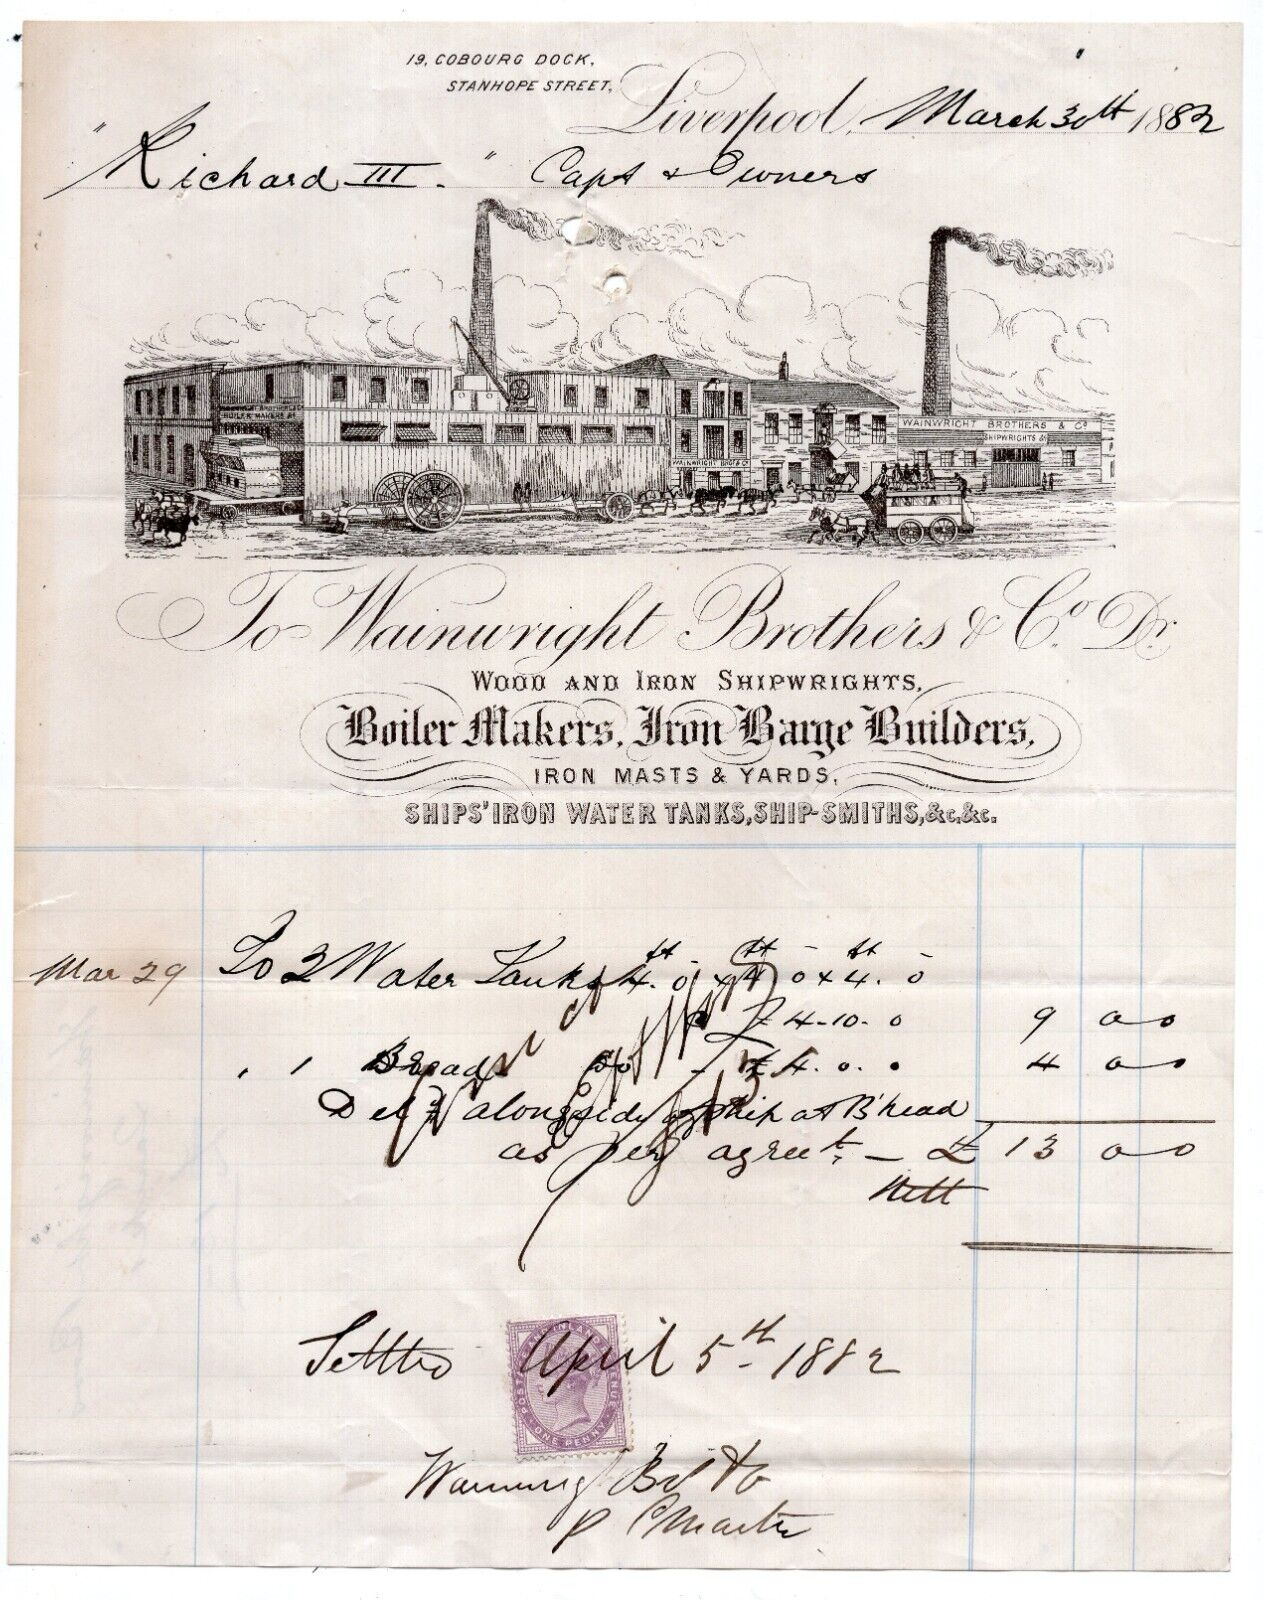 19, COBOURG DOCK,
STANHOPE STREET,
Liverpool, March 30th 1882
"Richard III." Capt & Owners
WAINWRIGHT BROTHERS & Co
BOILER MAKERS &c
WAINWRIGHT BROs & Co
WAINWRIGHT BROTHERS & Co
SHIPWRIGHTS &c
To Wainwright Brothers & Co. Dr.
WOOD AND IRON SHIPWRIGHTS,
Boiler Makers, Iron Barge Builders,
IRON MASTS & YARDS,
SHIPS' IRON WATER TANKS, SHIP-SMITHS, &c, &c.
Mar 29 To 2 Water Tanks 4ft. 0 x 4ft 0 x 4ft. 0
£4-10-0 9 0 0
" 1 Bread Do - £4.0.0 4 0 0
Deld alongside ship at B'head
as per agreet, - £ 13 0 0
Nett
Settled April 5th 1882
POSTAGE AND INLAND REVENUE
ONE PENNY
Wainwright Bros & Co
p